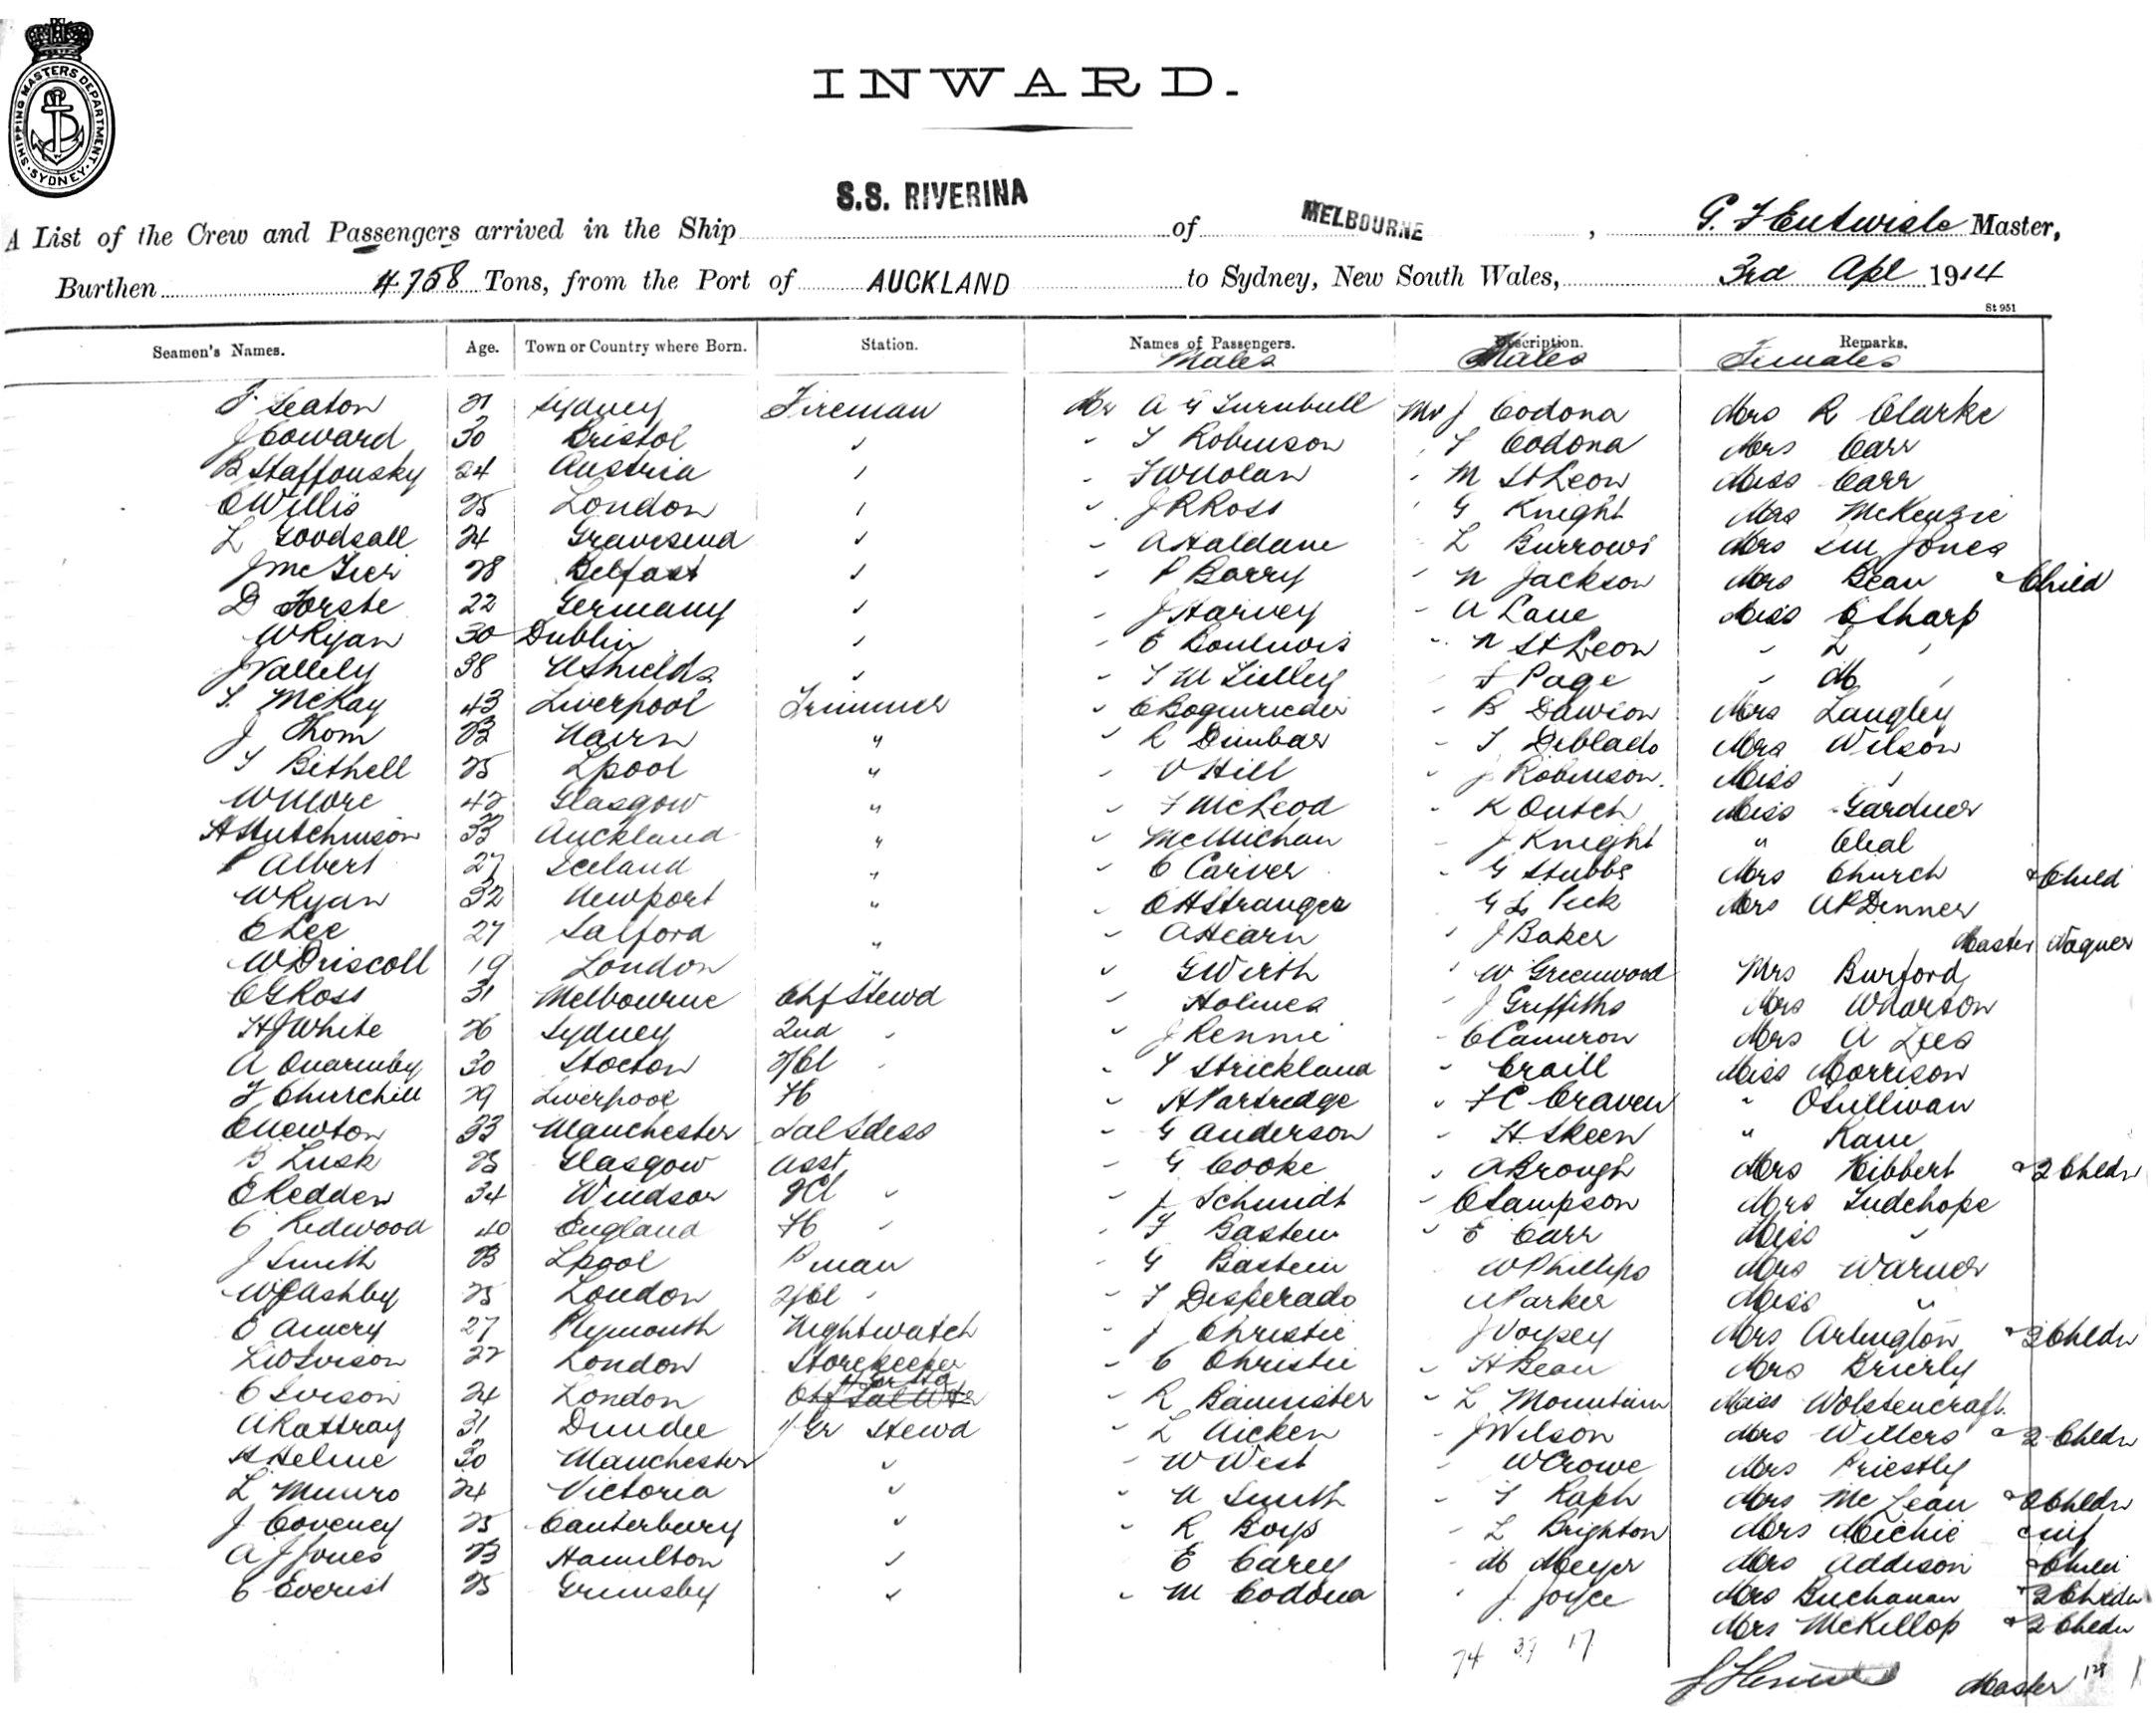 SHIPPING MASTERS DEPARTMENT · SYDNEY ·
INWARD.
S.S. RIVERINA
MELBOURNE
A List of the Crew and Passengers arrived in the Ship of , G. T Entwisle Master,
Burthen 4.758 Tons, from the Port of AUCKLAND to Sydney, New South Wales, 3rd Apl 1914
St 951
Seamen's Names. Age. Town or Country where Born. Station. Names of Passengers. Description. Remarks.
Males Males Females
F. Seaton 21 Sydney Fireman Mr A G Turnbull Mr J Codona Mrs R Clarke
J Coward 30 Bristol " T Robinson T Codona Mrs Carr
B Staffousky 24 Austria " F W Nolan " M St Leon Miss Carr
C Willis 25 London " J R Ross G Knight Mrs McKenzie
L Goodsall 24 Gravesend " A Haldane L Burrows Mrs Jones
J McTier 28 Belfast " P Barry " N Jackson Mrs Bean & Child
D Forste 22 Germany " J Harvey - A Lane Miss C Sharp
W Ryan 30 Dublin " E " N St Leon " L "
J Vallely 38 N Shields " T M Lilley F Page " M "
T. McKay 43 Liverpool Trimmer " - B Dawson Mrs Langley
J Thom 23 Nairn " " R Dunbar - T Deblado Mrs Wilson
T Bithell 25 Lpool " - V Hill " J Robinson. Miss "
W More 42 Glasgow " - F McLeod - K Outch Miss Gardner
A Hutchinson 33 Auckland " " McMichan - J Knight " Cheal
P Albert 27 Iceland " " C Carver - G Stubbs Mrs Church & Child
W Ryan 32 Newport " - C H Stranger G L Peck Mrs A P Denner
E Lee 27 Salford " " A Hearn " J Baker Master Wagner
W Driscoll 19 London " " G Wirth " W Greenwood Mrs Burford
C G Ross 31 Melbourne Chf Stewd " Holmes - J Griffiths Mrs Wharton
H J White 26 Sydney 2nd " " J Rennie - C Cameron Mrs A Lees
A Quarmby 30 Stocton " T Strickland " Craill Miss Morrison
F Churchill 29 Liverpool " H Partredge " F C Craven " OSullivan
C Newton 33 Manchester " G Anderson - H Skeen " Kane
B Lusk 25 Glasgow Asst - G Cooke " A Brough Mrs Hibbert & 2 Chldn
E Redden 34 Windsor " J Schmidt - C Sampson Mrs Tudehope
C Redwood 40 England " F Bastein " E Carr Miss "
J Smith 23 Lpool P man - G Bastein W Phillips Mrs Warner
W C Ashby 25 London - T Desperado A Parker Miss "
E Amery 27 Plymouth Nightwatch - J Christie J Vorpey Mrs Arlington & 3 Chldn
L W Ivison 22 London Storekeeper - C Christie - H Bean Mrs Brierly
C Ivison 24 London - R Bannister - L Mountain Miss Wolstencraft.
A Rattray 31 Dundee Gr Stewd - L Aicken - J Wilson Mrs Willers & 2 Chldn
H Helme 30 Manchester " - W West - W Crowe Mrs Priestly
L Munro 24 Victoria " - A Smith - T Raph Mrs McLean & 2 Chldn
J Coveney 25 Canterbury " - R Boys - L Brighton Mrs Michie & inf
A J Jones 23 Hamilton " E Carey - M Meyer Mrs Addison & Child
C Everist 25 Grimsby " - M Codona " J Joyce Mrs Buchanan & 2 Chldn
Mrs McKillop & 2 Chldn
74 37 17
Master 128